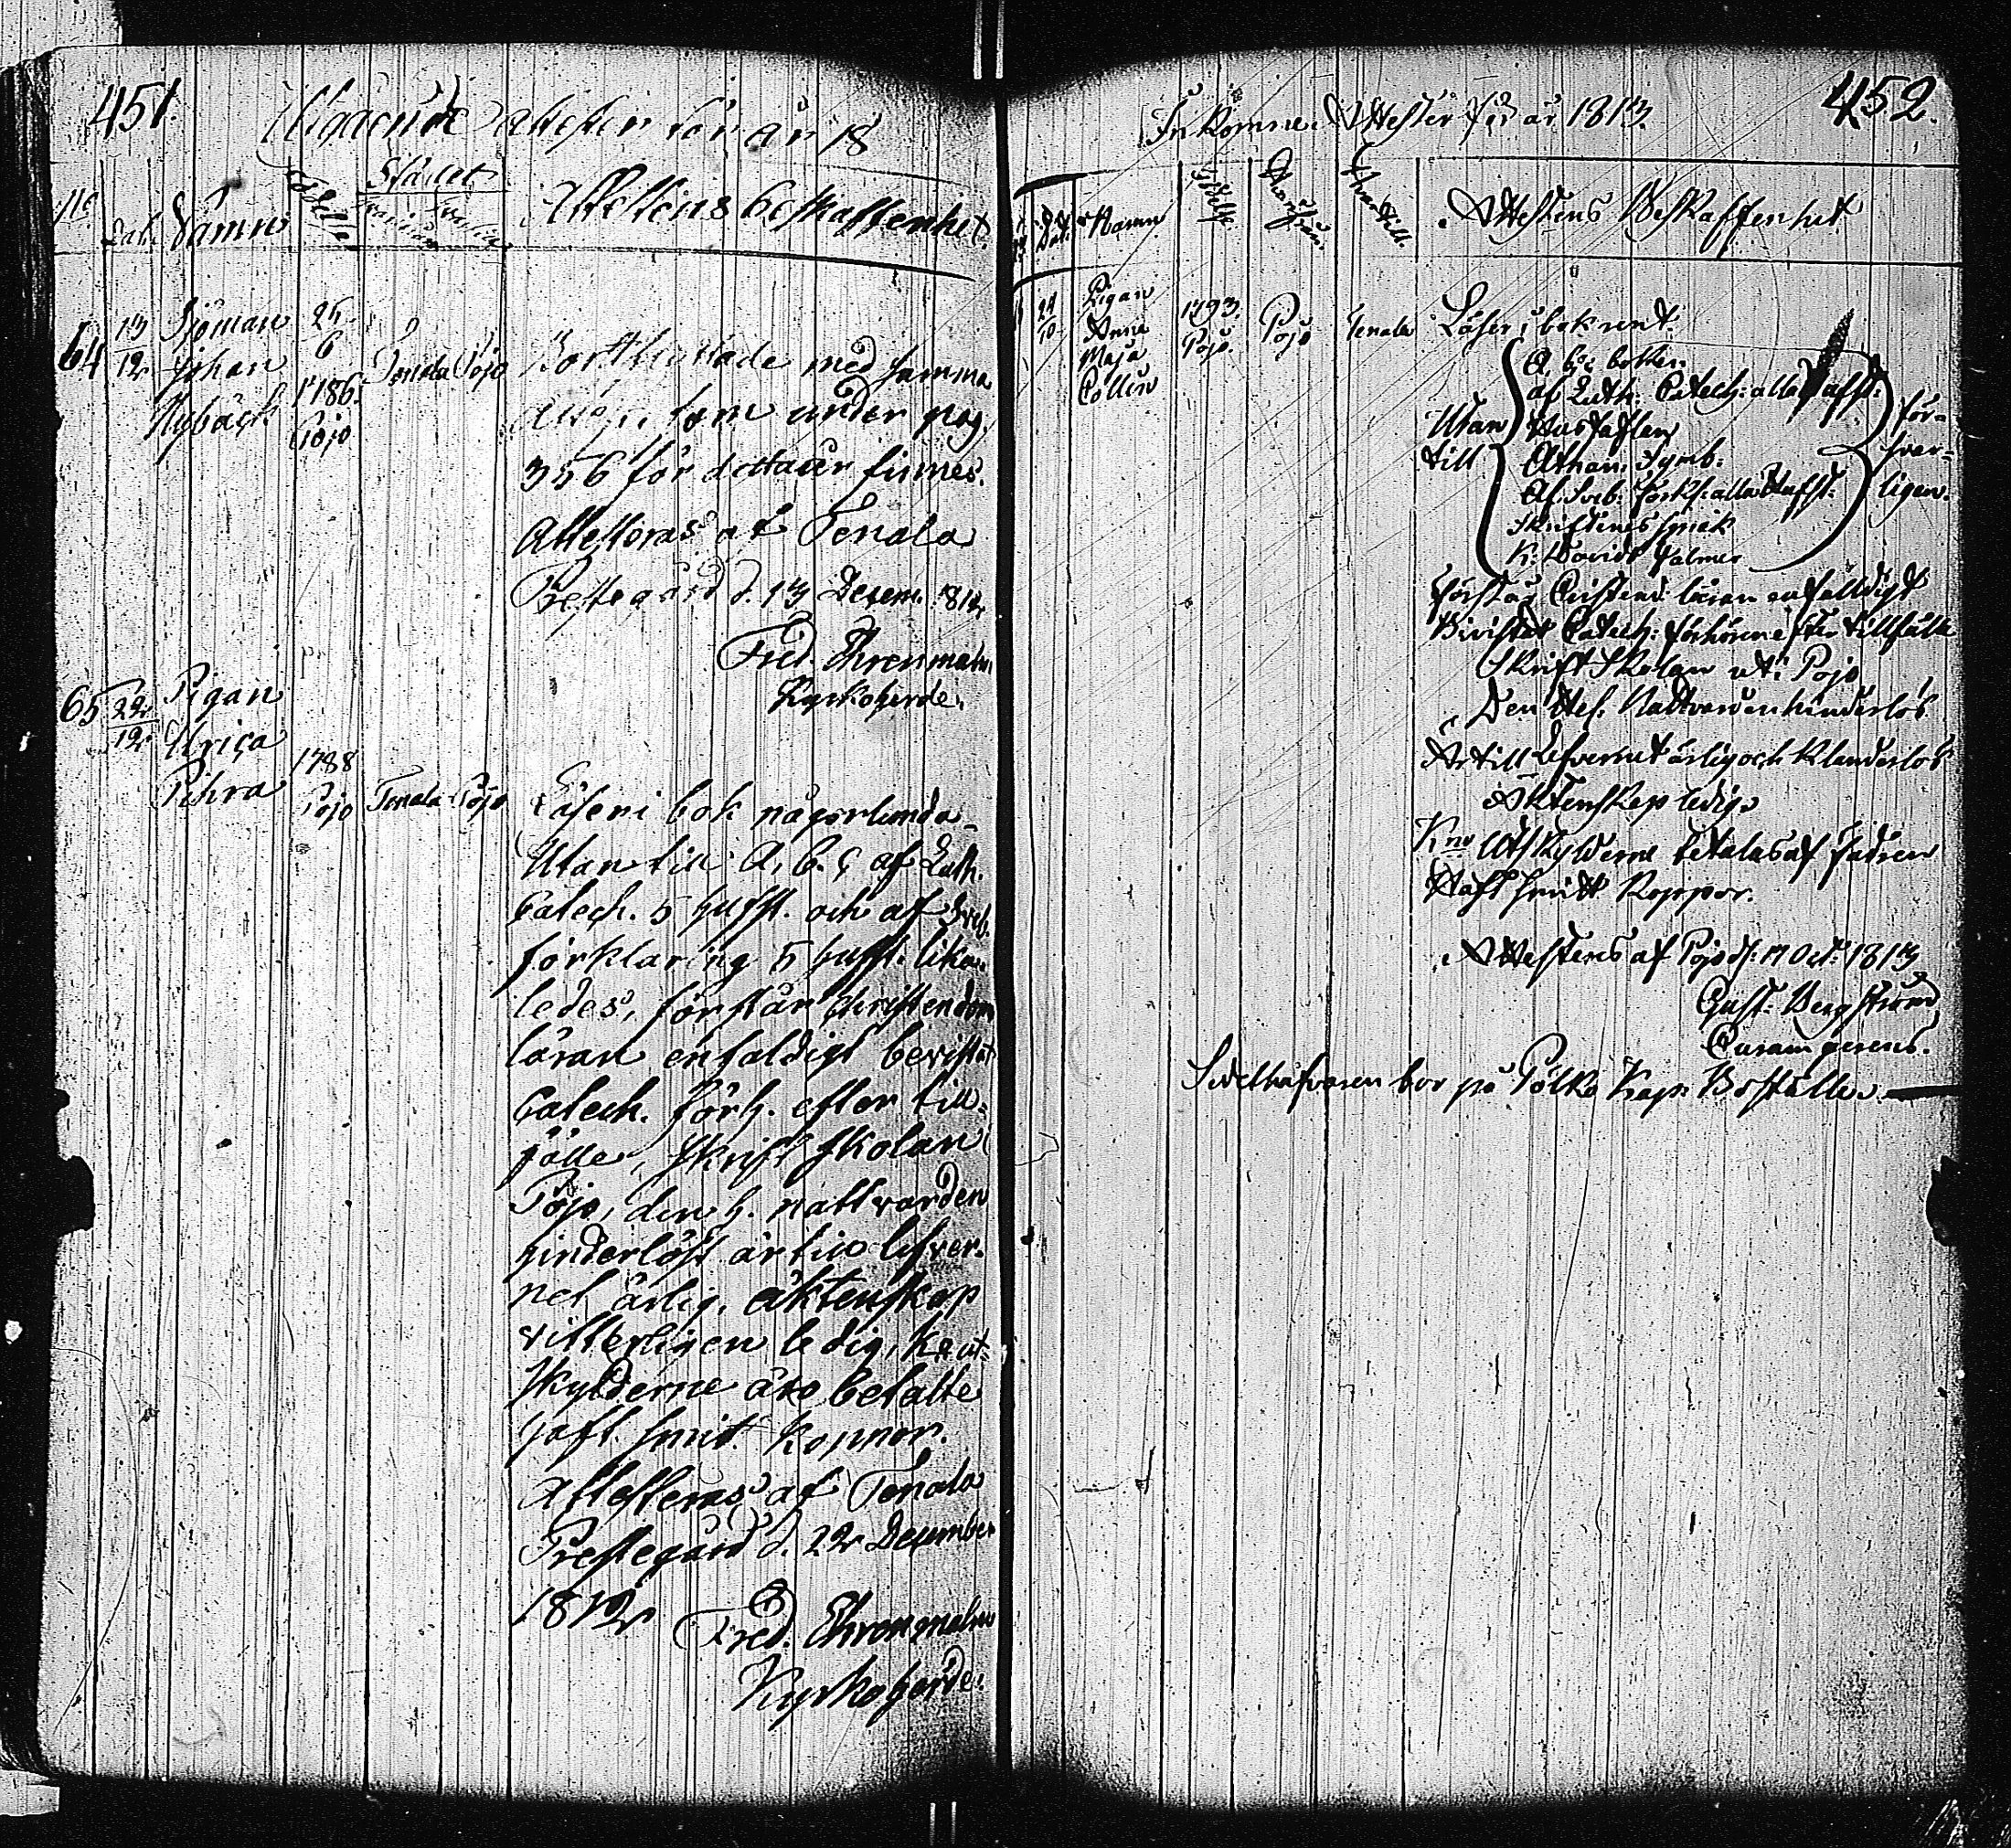 451.
Utgående attester för år 18
No Dat. Namn Födelse Stället Attestens beskaffenhet
64 13/12 Sjöman Johan Nybäck 25/6 1786. Pojo Tenala Pojo
Bortflyttade med samma
attest, som under pag.
356 för detta år finnes.
Attesteras af Tenala
Prestegård d. 13 Decem. 1812
Fred. Ehrenmalm
Kyrkoherde.
65 22/12 Pigan Ulrica Pihra 1788 Pojo Tenala Pojo
Läser i bok någorlunda
Utan till A, b. c af Luth.
Catech. 5 hufst. och af Sveb.
förklaring 5 hufst. lika-
ledes, förstår christendom
läran enfaldigt bevistat
Catech. förh. efter till-
fälle, skrift skolan i
Pojo, den h. nattvarden
hinderlöst är till lefver-
net ärlig, äktenskap
vitterligen ledig, Kr. ut-
skylderne äro betalte
haft smit. koppor.
Attesteras af Tenala
Prestegård d. 22 December
1812
Fred. Ehrenmalm
Kyrkoherde.
452.
Inkomne Attester för år 1813.
Dat. Namn Födelse Hvarifrån Hvartill Attestens Beskaffenhet
24/10 Pigan Anna Maja Collin 1793. Pojo. Pojo Tenala
Läser i bok rent.
Utan till
A, b, c boken
af Luth. Catech: alla Hufst:
Hustaflan
Athan. Symb:
Af Sveb: förkl: alla Hufst:
Skriftenes språk
K. Davids Psalmer
för-
svar-
ligen.
Förstår Cristend: läran enfalldigt
Bivistat Catech: förhören efter tillfälle
Skrift Skolan uti Pojo
Den Hel. Nattvarden hinderlös
Är till Lefvernet ärlig och klanderlös
Äktenskap ledig
Kno Utskylderne betalas af fadren
Haft smitt Koppor.
Attesteras af Pojo d: 17 Oct: 1813
Gust: Bergström
Curam gerens.
bor på Pölkö Kap: Boställe.